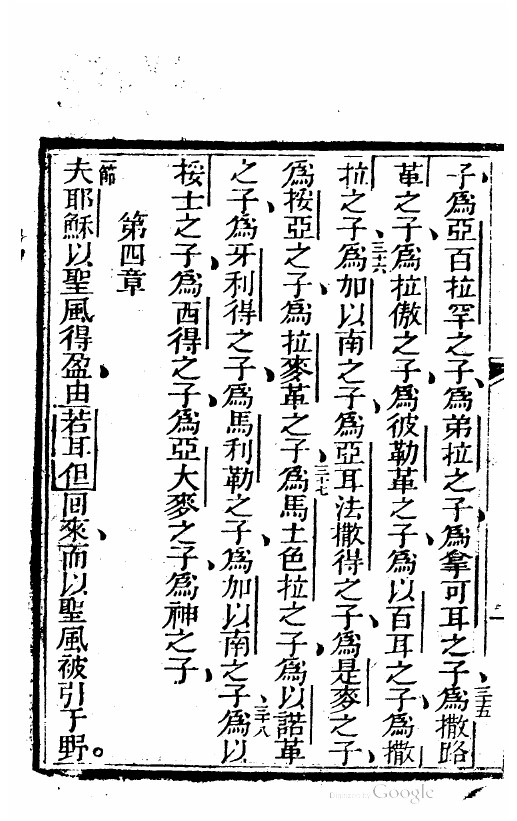 子為亞百拉罕之子為弟拉之子為拿可耳之子三十五為撒路
革之子為拉傲之子為彼勒革之子為以百耳之子為撒
拉之子三十六為加以南之子為亞耳法撒得之子為是麥之子
為挼亞之子為拉麥革之子三十七為馬土色拉之子為以諾革
之子為牙利得之子為馬利勒之子為加以南之子三十八為以
挼士之子為西得之子為亞大麥之子為神之子
第四章
一節夫耶穌以聖風得盈由若耳但回來而以聖風被引于野。
Digitized by Google